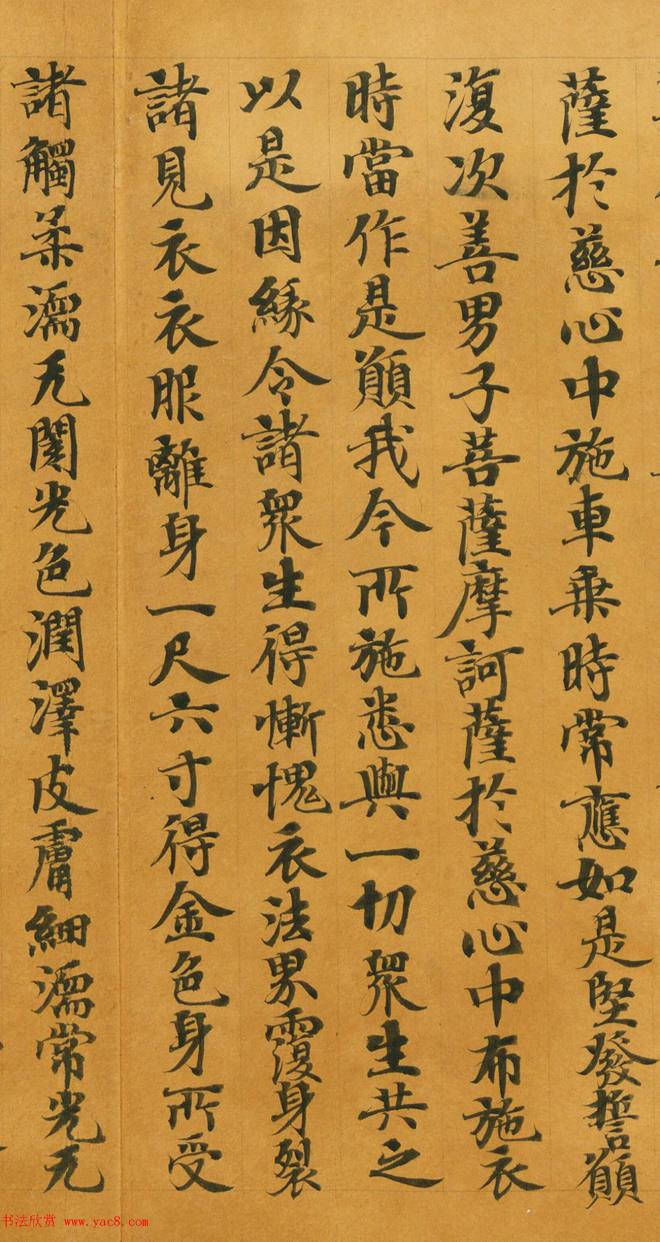 薩於慈心中施車乗時常應如是堅發誓願
復次善男子菩薩摩訶薩於慈心中布施衣
時當作是願我今所施悉與一切衆生共之
以是因緣令諸衆生得慚愧衣法界覆身裂
諸見衣衣服離身一尺六寸得金色身所受
諸觸柔濡无閡光色潤澤皮膚細濡常光无
书法欣赏 www.yac8.com